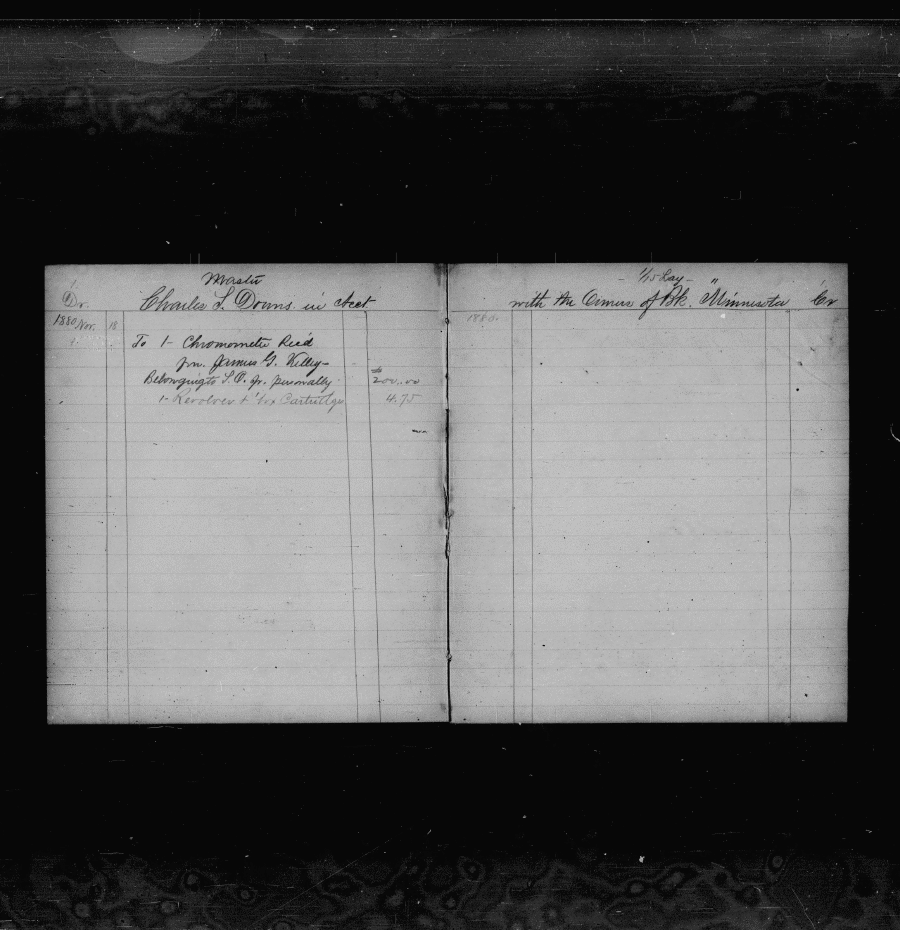 Master
Dr. Charles S. Downs in Acct
1880 Nov. 18
To 1- Chronometer Rec'd
fm. James G. Kelley-
Belonging to S. O. Jr. personally $200.00
1- Revolver & box Cartridges 4.75
- 1/15 Lay - "
with the Owners of Bk. Minnesota Cr
1880.